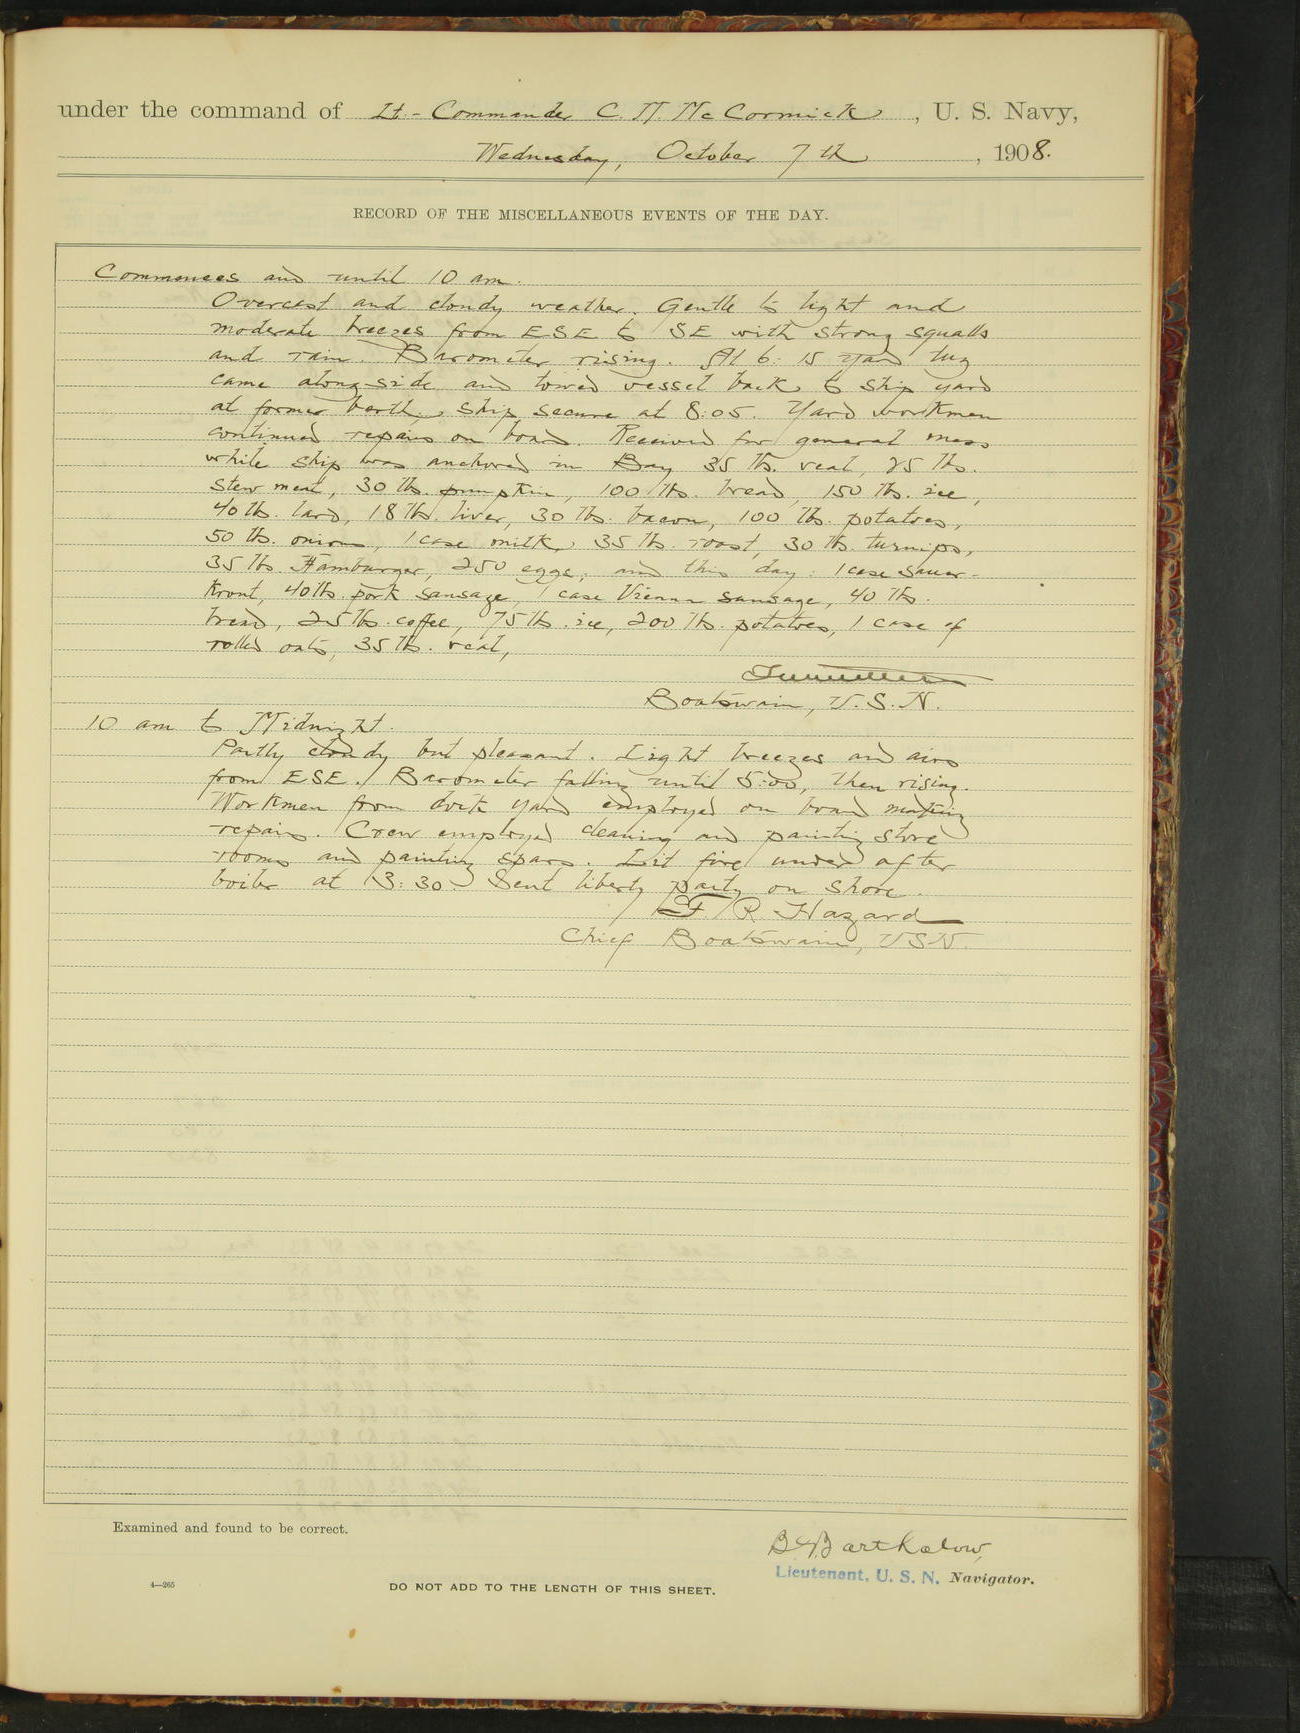 under the command of Lt.-Commander C. M. McCormick, U. S. Navy,
Wednesday, October 7th, 1908.
RECORD OF THE MISCELLANEOUS EVENTS OF THE DAY.
Commences and until 10 am.
Overcast and cloudy weather. Gentle to light and
moderate breezes from ESE to SE with strong squalls
and rain. Barometer rising. At 6:15 yard tug
came alongside and towed vessel back to ship yard
at former berth, ship secure at 8:05. Yard workmen
continued repairs on board. Received for general mess
while ship was anchored in Bay 35 lbs. veal, 25 lbs.
stew meat, 30 lbs. pumpkin, 100 lbs. bread, 150 lbs. ice,
40 lbs. lard, 18 lbs. liver, 30 lbs. bacon, 100 lbs. potatoes,
50 lbs. onions, 1 case milk, 35 lbs. roast, 30 lbs. turnips,
35 lbs. Hamburger, 250 eggs; and this day: 1 case sauer-
krout, 40 lbs. pork sausage, 1 case Vienna sausage, 40 lbs.
bread, 25 lbs. coffee, 75 lbs. ice, 200 lbs. potatoes, 1 case of
rolled oats, 35 lbs. veal,
Boatswain, U.S.N.
10 am to Midnight.
Partly cloudy but pleasant. Light breezes and airs
from ESE. Barometer falling until 5:00, then rising.
Workmen from dock yard employed on board making
repairs. Crew employed cleaning and painting store
rooms and painting spars. Lit fire under after
boiler at 3:30. Sent liberty party on shore.
F. R. Hazard
Chief Boatswain, USN.
Examined and found to be correct.
Barthalow,
Lieutenant, U. S. N. Navigator.
4—265
DO NOT ADD TO THE LENGTH OF THIS SHEET.